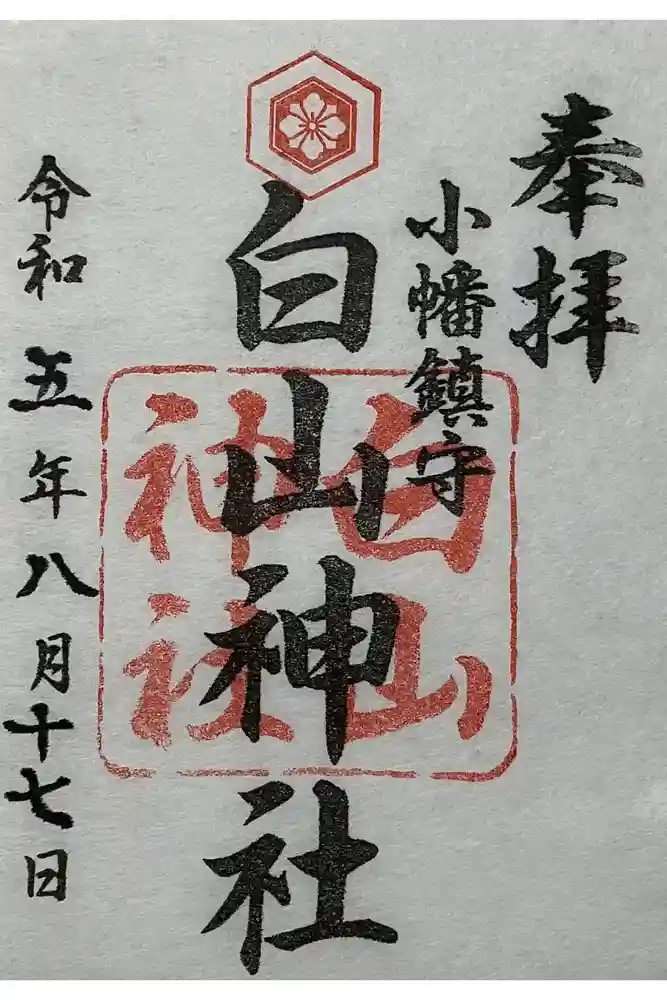 奉拝
小幡鎮守
白山神社
白山
神社
令和五年八月十七日